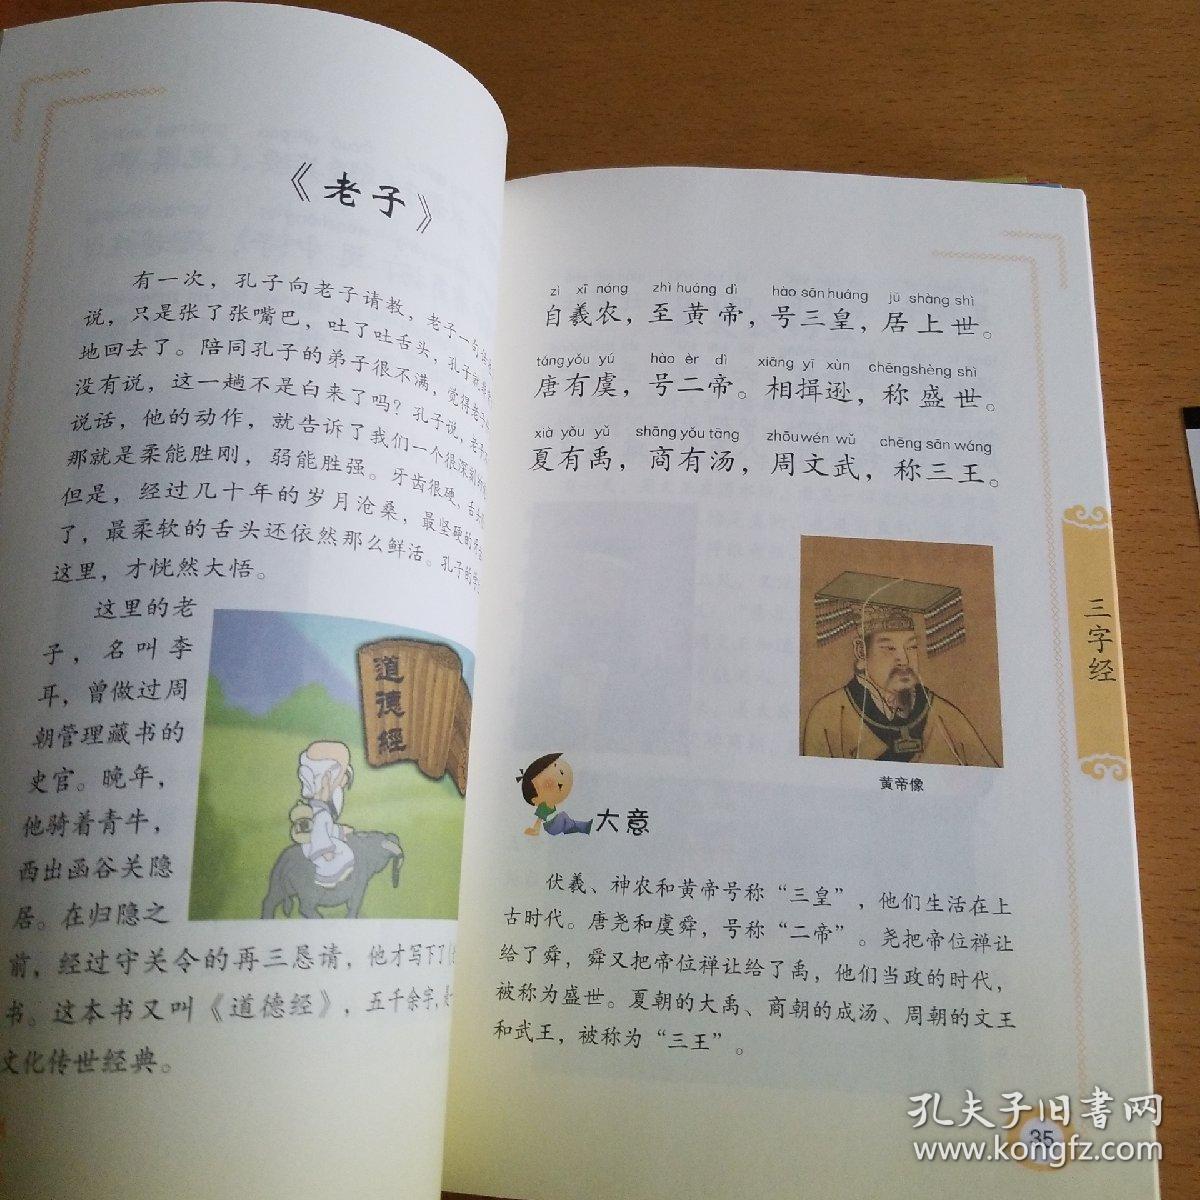 《老子》
有一次，孔子向老子请教，老子一句
说，只是张了张嘴巴，吐了吐舌头，孔子就
地回去了。陪同孔子的弟子很不满，觉得老
没有说，这一趟不是白来了吗？孔子说，老子
说话，他的动作，就告诉了我们一个很深刻
那就是柔能胜刚，弱能胜强。牙齿很硬，舌头
但是，经过几十年的岁月沧桑，最坚硬的牙
了，最柔软的舌头还依然那么鲜活。孔子的
这里，才恍然大悟。
这里的老
子，名叫李
耳，曾做过周
朝管理藏书的
史官。晚年，
他骑着青牛，
西出函谷关隐
居。在归隐之
前，经过守关令的再三恳请，他才写下了
书。这本书又叫《道德经》，五千余字，是
文化传世经典。
道德經
道
zì xī nóng zhì huáng dì hào sān huáng jū shàng shì
自羲农，至黄帝，号三皇，居上世。
táng yǒu yú hào èr dì xiāng yī xùn chēng shèng shì
唐有虞，号二帝。相揖逊，称盛世。
xià yǒu yǔ shāng yǒu tāng zhōu wén wǔ chēng sān wáng
夏有禹，商有汤，周文武，称三王。
黄帝像
大意
伏羲、神农和黄帝号称“三皇”，他们生活在上
古时代。唐尧和虞舜，号称“二帝”。尧把帝位禅让
给了舜，舜又把帝位禅让给了禹，他们当政的时代，
被称为盛世。夏朝的大禹、商朝的成汤、周朝的文王
和武王，被称为“三王”。
三字经
35
孔夫子旧书网
www.kongfz.com